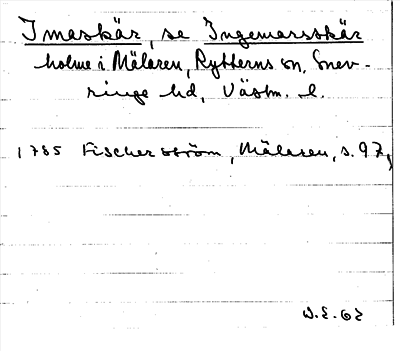 Imaskär, se Ingemarsskär
holme i Mälaren, Rytterns sn, Snev-
ringe hd, Västm. l.
1785 Fischerström, Mälaren, s. 97,
W.E. 62